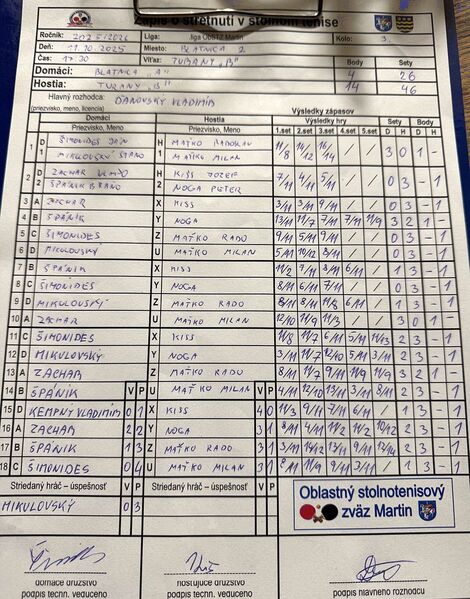 Zápis o stretnutí v stolnom tenise
Ročník: 2025/2026 Liga: .liga ObSTZ Martin Kolo: 3.
Deň: 11.10.2025 Miesto: BLATNICA 2
Čas: 17:30 Víťaz: TURANY "B" Body Sety
Domáci: BLATNICA "A" 4 26
Hostia: TURANY "B" 14 46
Hlavný rozhodca: DANOVSKÝ VLADIMÍR
(priezvisko, meno, licencia)
Domáci Hostia Výsledky zápasov
Priezvisko, Meno Priezvisko, Meno Výsledky hry Sety Body
1.set 2.set 3.set 4.set 5.set D H D H
1 D1 ŠIMONIDES JÁN H1 MAŤKO RADOLAN 11/8 16/12 16/14 3 0 1 -
MIKULOVSKÝ STANO MAŤKO MILAN
2 D2 ZACHAR VLADO H2 KISS JOZEF 7/11 4/11 5/11 0 3 - 1
ŠPÁNIK BRAŇO NOGA PETER
3 A ZACHAR X KISS 3/11 3/11 9/11 / / 0 3 - 1
4 B ŠPÁNIK Y NOGA 13/11 11/7 7/11 7/11 11/9 3 2 1 -
5 C ŠIMONIDES Z MAŤKO RADO 9/11 5/11 5/11 / / 0 3 - 1
6 D MIKULOVSKÝ U MAŤKO MILAN 5/11 10/12 3/11 / / 0 3 - 1
7 B ŠPÁNIK X KISS 11/2 7/11 8/11 6/11 / 1 3 - 1
8 C ŠIMONIDES Y NOGA 8/11 6/11 7/11 / / 0 3 - 1
9 D MIKULOVSKÝ Z MAŤKO RADO 6/11 / 1 3 - 1
10 A ZACHAR U MAŤKO MILAN 12/10 11/9 11/3 / / 3 0 1 -
11 C ŠIMONIDES X KISS 8/11 11/7 11/6 5/11 2 3 - 1
12 D MIKULOVSKÝ Y NOGA 3/11 11/7 12/10 5/11 3/11 2 3 - 1
13 A ZACHAR Z MAŤKO RADO 8/11 11/7 9/11 11/9 9/11 2 3 - 1
14 B ŠPÁNIK V P U MAŤKO MILAN V P 4/11 12/10 13/11 3/11 8/11 2 3 - 1
15 D KEMPNÝ VLADIMÍR 0 1 X KISS 4 0 11/3 9/11 7/11 / 1 3 - 1
16 A ZACHAR 2 2 Y NOGA 3 1 8/11 4/11 11/2 11/2 10/12 2 3 - 1
17 B ŠPÁNIK 1 3 Z MAŤKO RADO 3 1 3/11 14/12 11/9 9/11 2 3 - 1
18 C ŠIMONIDES 0 4 U MAŤKO MILAN 3 1 8/11 11/9 9/11 3/11 / 1 3 - 1
Striedaný hráč - úspešnosť V P Striedaný hráč - úspešnosť V P
MIKULOVSKÝ 0 3
Oblastný stolnotenisový
zväz Martin
domáce družstvo hosťujúce družstvo podpis hlavného rozhodcu
podpis techn. veduceho podpis techn. veduceho